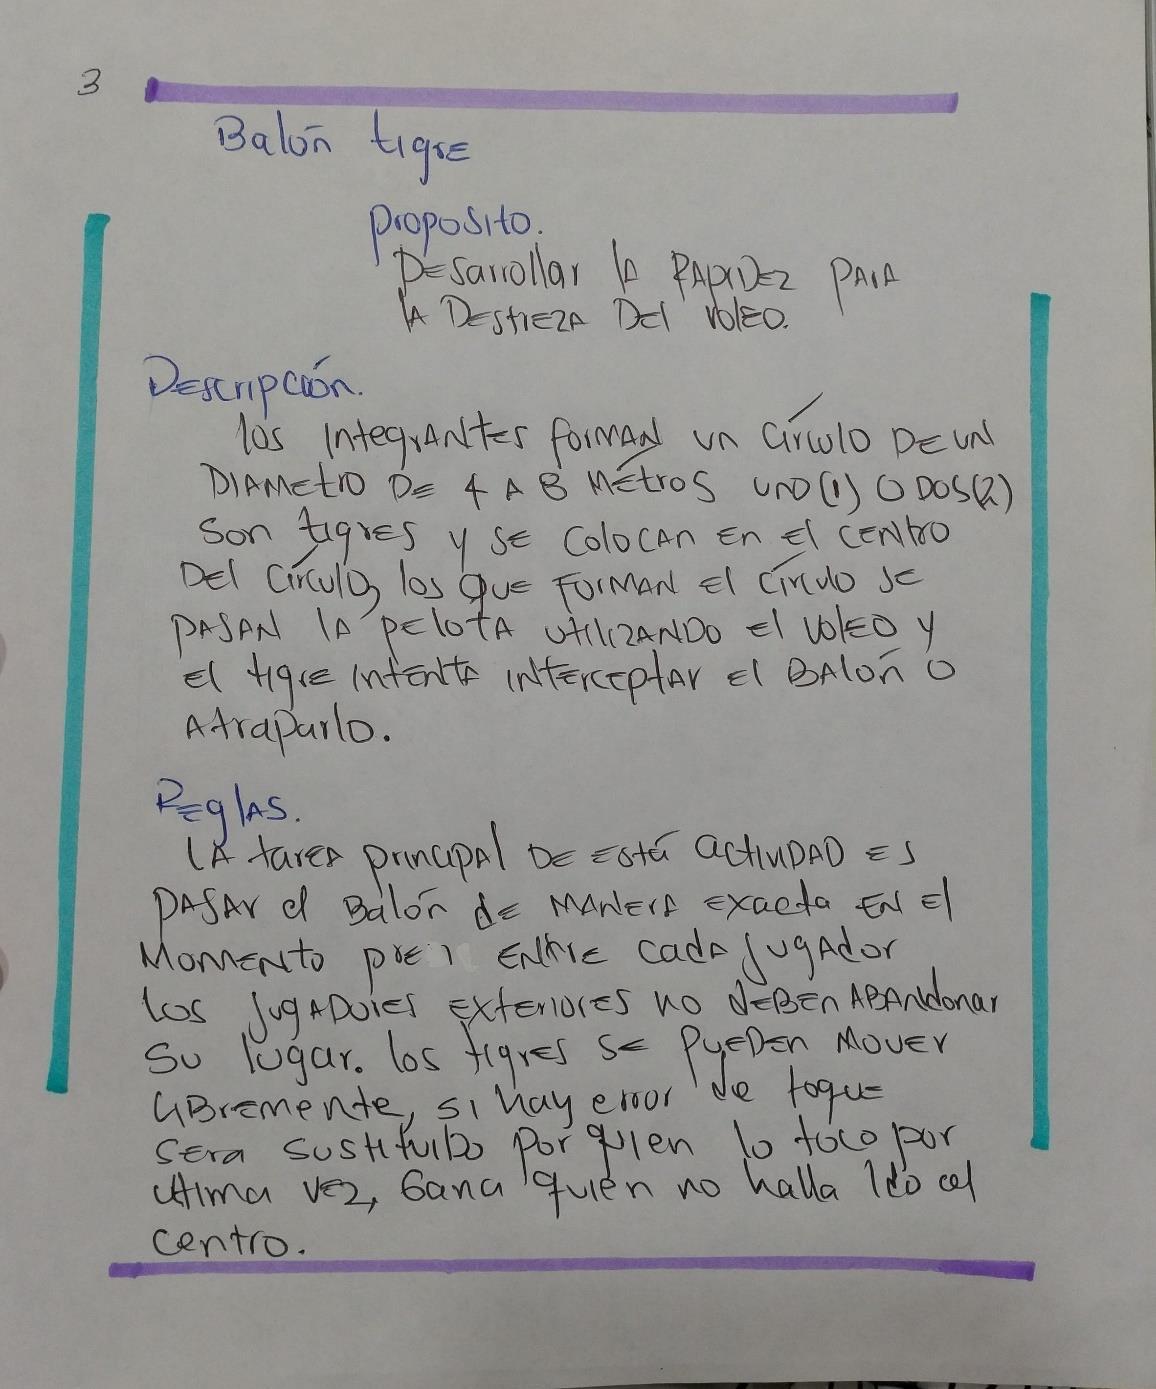 3
Balón tigre
Proposito.
Desarrollar la rapidez para
la destreza del voleo.
Descripción.
los integrantes forman un círculo de un
diametro de 4 a 8 métros uno(1) o dos(2)
son tigres y se colocan en el centro
del círculo, los que forman el círculo se
pasan la pelota utilizando el voleo y
el tigre intenta interceptar el balón o
atraparlo.
Reglas.
la tarea principal de está actividad es
pasar el balón de manera exacta en el
momento entre cada jugador
los jugadores exteriores no deben abandonar
su lugar. los tigres se pueden mover
libremente, si hay error de toque
sera sustituido por quien lo toco por
ultima vez, Gana quién no halla ido al
centro.